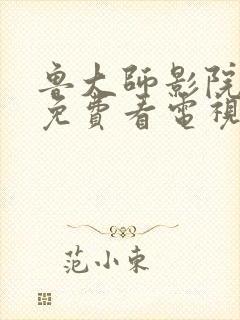 鲁大师影院
免費看電視
范小東